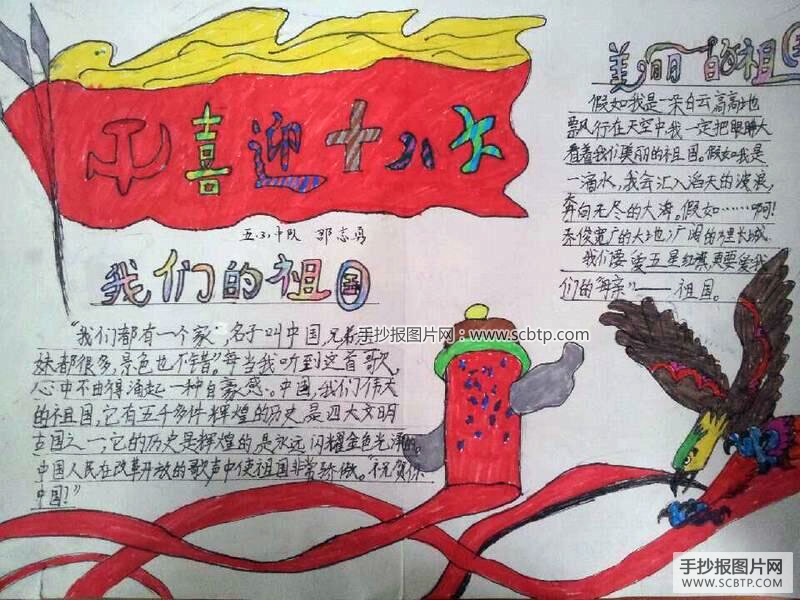 喜迎十八大
五.3.中队 邵志勇
我们的祖国
"我们都有一个家",名子叫中国,兄弟姐
妹都很多,景色也不错."每当我听到这首歌,
心中不由得涌起一种自豪感。中国,我们伟大
的祖国,它有五千多年辉煌的历史,是四大文明
古国之一,它的历史是辉煌的,是永远闪耀金色光泽的。
中国人民在改革开放的歌声中使祖国非常骄傲。
中国!"
美丽的祖国
假如我是一朵白云高高地
飘行在天空中,我一定把眼睁大
看着我们美丽的祖国。假如我是
一滴水,我会汇入滔天的波浪,
奔向无尽的大海。假如……啊!
宽广的大地,广阔的
我们要爱五星红旗,更要爱我
们的"母亲"——祖国。
手抄报图片网:
www.scbtp.com
手抄报图片网
WWW.SCBTP.COM